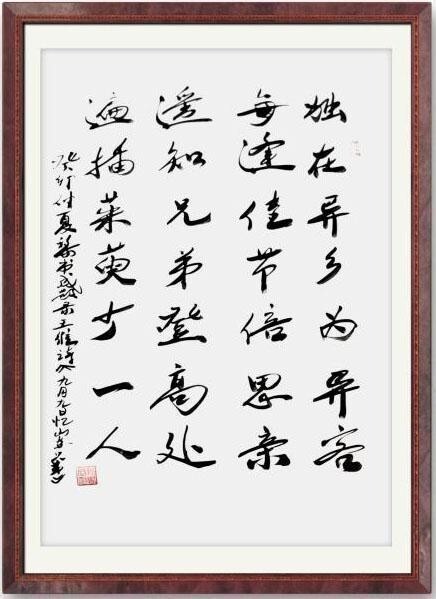 独在异乡为异客
每逢佳节倍思亲
遥知兄弟登高处
遍插茱萸少一人
王维诗九月九日忆